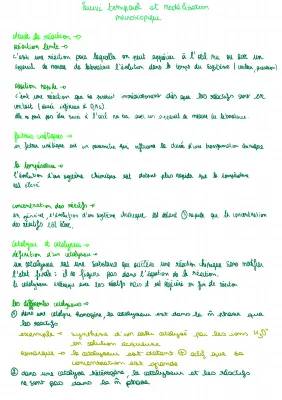 Suivi temporel et modélisation
macroscopique
durée de réaction →
réaction lente →
c'est une réaction pour laquelle on peut apprécier à l'œil nu ou avec un
appareil de mesure de laboratoire l'évolution dans le temps du système
réaction rapide →
c'est une réaction qui se produit instantanément dès que les réactifs sont en
contact (durée inférieure à 0,1s)
elle ne peut pas être suivie à l'œil nu ou avec un appareil de mesure de laboratoire.
facteurs cinétiques →
un facteur cinétique est un paramètre qui influence la durée d'une transformation chimique
la température →
l'évolution d'un système chimique est d'autant plus rapide que la température
est élevée
concentration des réactifs →
en général l'évolution d'un système chimique est d'autant ⊕ rapide que la concentration
des réactifs est élevée.
Catalyse et catalyseur →
définition d'un catalyseur →
un catalyseur est une substance qui accélère une réaction chimique sans modifier
l'état final : il ne figure pas dans l'équation de la réaction.
le catalyseur réagit avec les réactifs mais il est régénéré en fin de réaction
les différentes catalyses →
① dans une catalyse homogène le catalyseur est dans la m̂ phase que
les réactifs
exemple → synthèse d'un ester catalysé par les ions H₃O⁺
en solution aqueuse
remarque → le catalyseur est d'autant ⊕ actif que sa
concentration est grande
② dans une catalyse hétérogène, le catalyseur et les réactifs
ne sont pas dans la m̂ phase